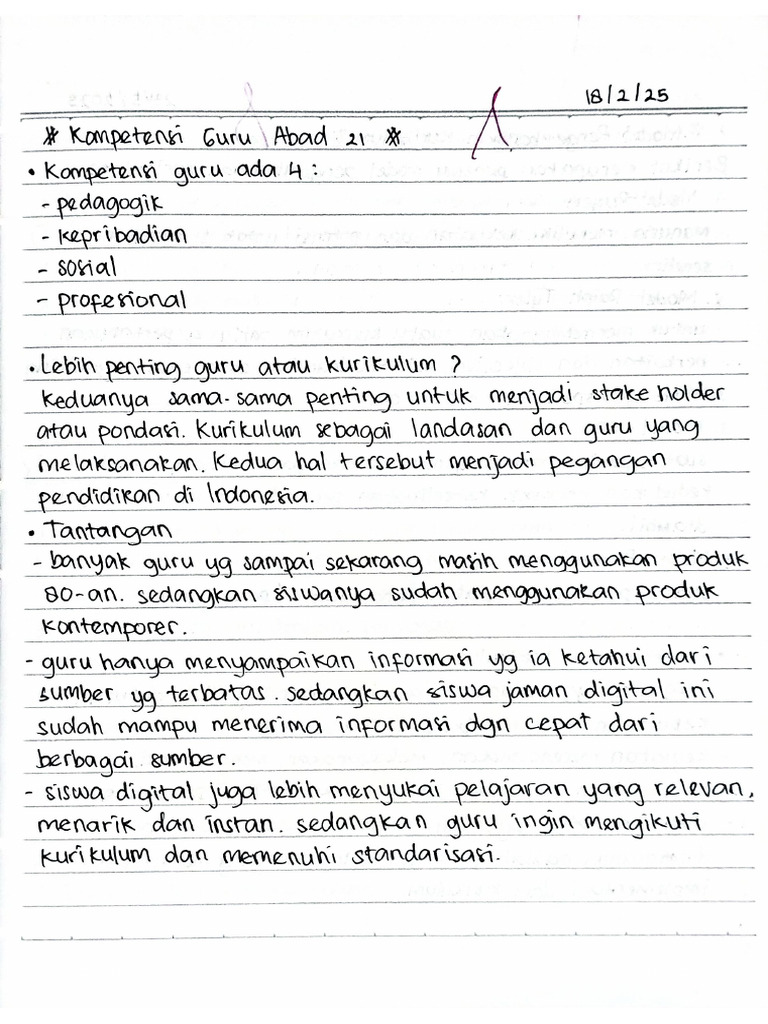 18/2/25
* Kompetensi Guru Abad 21 *
• Kompetensi guru ada 4 :
- pedagogik
- kepribadian
- sosial
- profesional
• Lebih penting guru atau kurikulum ?
keduanya sama-sama penting untuk menjadi stake holder
atau pondasi. Kurikulum sebagai landasan dan guru yang
melaksanakan. Kedua hal tersebut menjadi pegangan
pendidikan di Indonesia.
• Tantangan
- banyak guru yg sampai sekarang masih menggunakan produk
80-an. sedangkan siswanya sudah menggunakan produk
kontemporer.
- guru hanya menyampaikan informasi yg ia ketahui dari
sumber yg terbatas. sedangkan siswa jaman digital ini
sudah mampu menerima informasi dgn cepat dari
berbagai sumber.
- siswa digital juga lebih menyukai pelajaran yang relevan,
menarik dan instan. sedangkan guru ingin mengikuti
kurikulum dan memenuhi standarisasi.